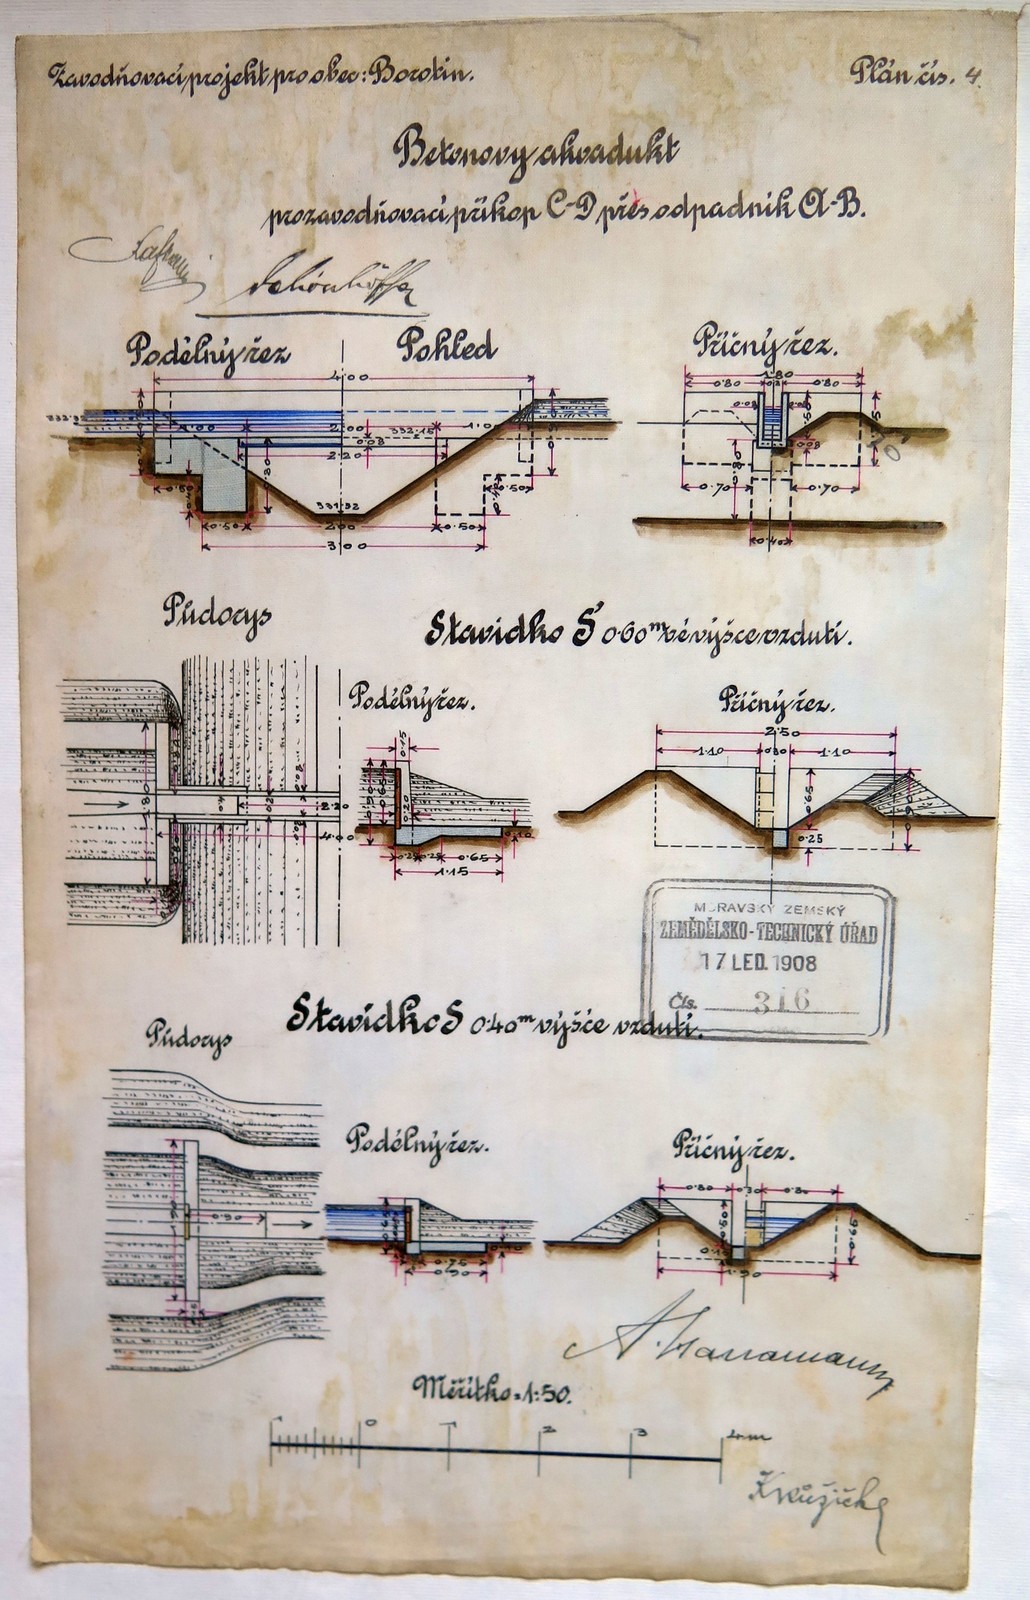 Zavodňovací projekt pro obec: Borotín.
Plán čís. 4.
Betonový akvadukt
pro zavodňovací příkop C-D přes odpadník A-B.
Podélný řez
Pohled
Příčný řez.
4.00
1.80
0.80 0.80
332.15
1.00 2.00 1.0
0.08
2.20
0.80
0.50 0.50
0.70 0.70
331.32
0.50 2.00 0.50
3.00
0.40
Půdorys
Stavidko S' 0.60 m vé výšce vzdutí.
Podélný řez.
Příčný řez.
2.50
1.10 0.30 1.10
0.15
0.65
0.20
0.65
0.25
0.10
0.65
1.15
2.20
4.00
MORAVSKÝ ZEMSKÝ
ZEMĚDĚLSKO-TECHNICKÝ ÚŘAD
17 LED. 1908
Čís. 316
Stavidko S 0.40 m výšce vzdutí.
Půdorys
Podélný řez.
Příčný řez.
0.80 0.30 0.80
0.90
0.60
0.65
0.75
0.90
1.90
Měřítko = 1:50.
1 0 1 2 3 4 m